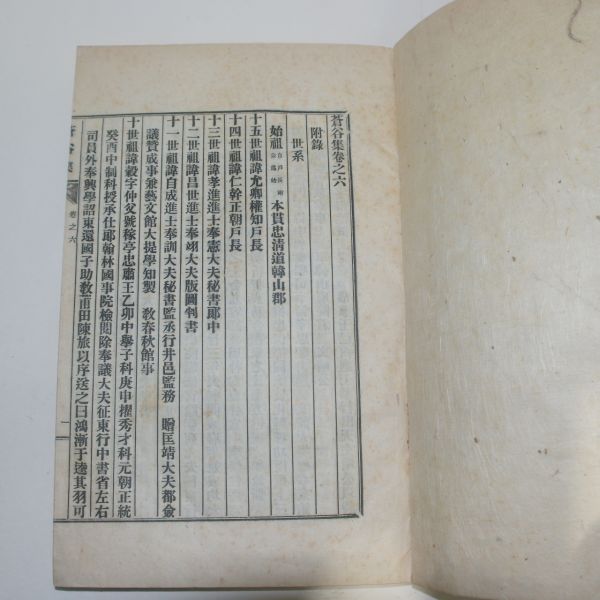 蒼谷集卷之六
附錄
世系
始祖 本貫忠淸道韓山郡
十五世祖諱允卿權知戶長
十四世祖諱仁幹正朝戶長
十三世祖諱孝進進士奉憲大夫秘書郞中
十二世祖諱昌世進士奉翊大夫版圖判書
十一世祖諱自成進士奉訓大夫秘書監丞行井邑監務 贈匡靖大夫都僉
議贊成事兼藝文館大提學知製 敎春秋館事
十世祖諱穀字仲父號稼亭忠肅王乙卯中擧子科庚申擢秀才科元朝正統
癸酉中制科授承仕郞翰林國事院檢閱除奉議大夫征東行中書省左右
司員外奉興學詔東還國子助敎甫田陳旅以序送之曰鴻漸于逵其羽可
卷之六
一